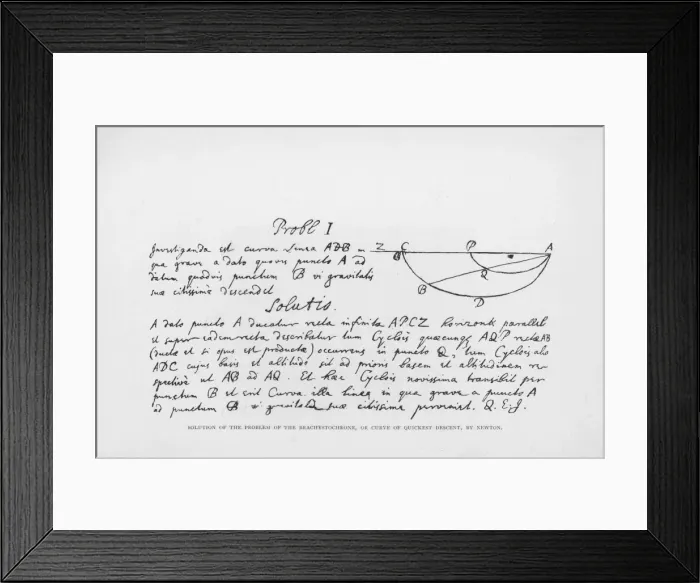 Probl I
Investiganda est curva Linea ADB in
qua grave a dato quovis puncto A ad
datum quodvis punctum B vi gravitatis
suæ citissimè descendet
Z C P A
B Q
D
Solutio.
A dato puncto A ducatur recta infinita APCZ horizonti parallela
et super eadem recta describatur tum Cyclois quæcunq AQP rectæ AB
(ductæ et si opus est productæ) occurrens in puncto Q, tum Cyclois alia
ADC cujus basis et altitudo sit ad prioris basem et altitudinem res-
pectivè ut AB ad AQ. Et hæc Cyclois novissima transibit per
punctum B et erit Curva illa linea in qua grave a puncto A
ad punctum B vi gravitatis suæ citissime perveniet. Q.E.I.
SOLUTION OF THE PROBLEM OF THE BRACHISTOCHRONE, OR CURVE OF QUICKEST DESCENT, BY NEWTON.